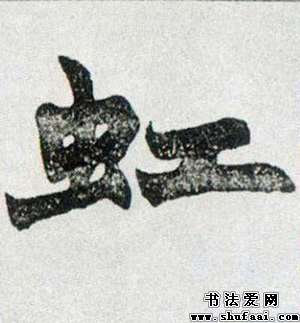 虹
书法爱网
www.shufaai.com